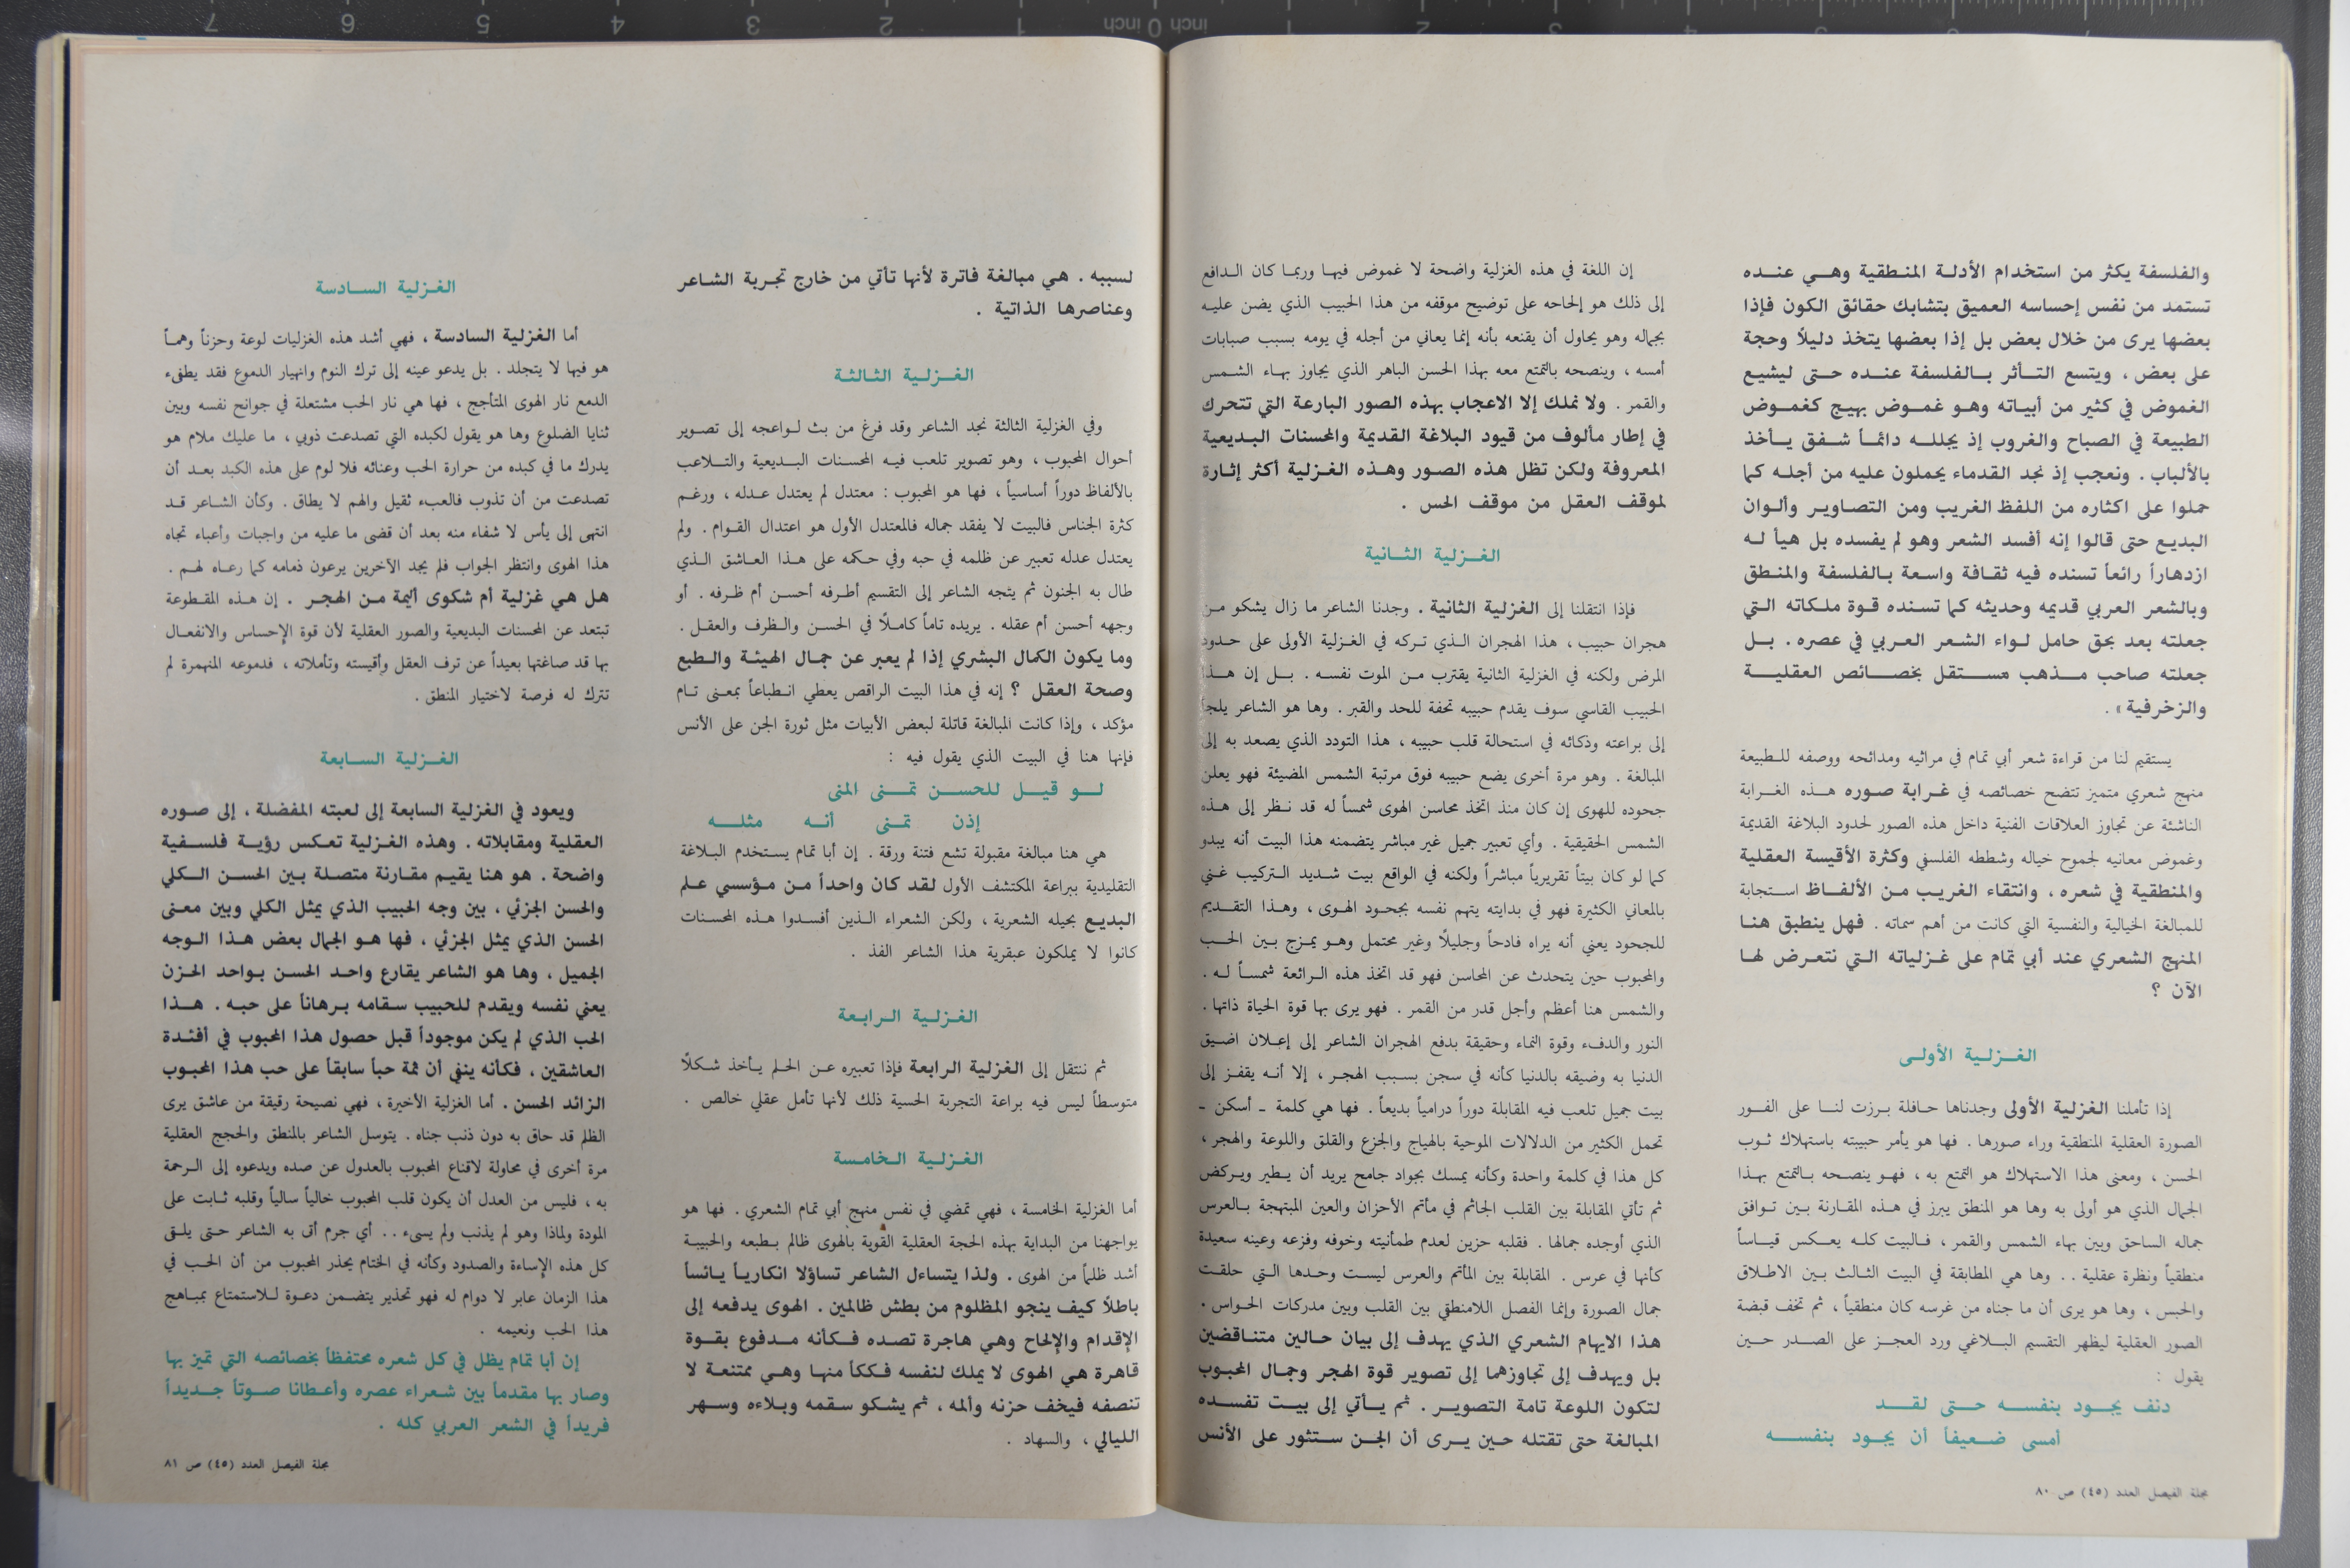 والفلسفة يكثر من استخدام الأدلة المنطقية وهي عنده
تستمد من نفس إحساسه العميق بتشابك حقائق الكون فإذا
بعضها يرى من خلال بعض بل إذا بعضها يتخذ دليلاً وحجة
على بعض ، ويتسع التأثر بالفلسفة عنده حتى ليشيع
الغموض في كثير من أبياته وهو غموض بهيج كغموض
الطبيعة في الصباح والغروب إذ يجلله دائماً شفق يأخذ
بالألباب . ونعجب إذ نجد القدماء يحملون عليه من أجله كما
حملوا على اكثاره من اللفظ الغريب ومن التصاوير وألوان
البديع حتى قالوا إنه أفسد الشعر وهو لم يفسده بل هيأ له
ازدهاراً رائعاً تسنده فيه ثقافة واسعة بالفلسفة والمنطق
وبالشعر العربي قديمه وحديثه كما تسنده قوة ملكاته التي
جعلته بعد بحق حامل لواء الشعر العربي في عصره . بل
جعلته صاحب مذهب مستقل بخصائص العقلية
والزخرفية » .
يستقيم لنا من قراءة شعر أبي تمام في مراثيه ومدائحه ووصفه للطبيعة
منهج شعري متميز تتضح خصائصه في غرابة صوره هذه الغرابة
الناشئة عن تجاوز العلاقات الفنية داخل هذه الصور لحدود البلاغة القديمة
وغموض معانيه لجموح خياله وشططه الفلسفي وكثرة الأقيسة العقلية
والمنطقية في شعره ، وانتقاء الغريب من الألفاظ استجابة
للمبالغة الخيالية والنفسية التي كانت من أهم سماته . فهل ينطبق هنا
المنهج الشعري عند أبي تمام على غزلياته التي نتعرض لها
الآن ؟
الغزلية الأولى
إذا تأملنا الغزلية الأولى وجدناها حافلة برزت لنا على الفور
الصورة العقلية المنطقية وراء صورها . فها هو يأمر حبيبته باستهلاك ثوب
الحسن ، ومعنى هذا الاستهلاك هو التمتع به ، فهو ينصحه بالتمتع بهذا
الجمال الذي هو أولى به وها هو المنطق يبرز في هذه المقارنة بين توافق
جماله الساحق وبين بهاء الشمس والقمر ، فالبيت كله يعكس قياساً
منطقياً ونظرة عقلية .. وها هي المطابقة في البيت الثالث بين الاطلاق
والحبس ، وها هو يرى أن ما جناه من غرسه كان منطقياً ، ثم تخف قبضة
الصور العقلية ليظهر التقسيم البلاغي ورد العجز على الصدر حين
يقول :
دنف يجود بنفسه حتى لقد
أمسى ضعيفاً أن يجود بنفسه
مجلة الفيصل العدد (٤٥) ص ٨٠
إن اللغة في هذه الغزلية واضحة لا غموض فيها وربما كان الدافع
إلى ذلك هو إلحاحه على توضيح موقفه من هذا الحبيب الذي يضن عليه
بجماله وهو يحاول أن يقنعه بأنه إنما يعاني من أجله في يومه بسبب صبابات
أمسه ، وينصحه بالتمتع معه بهذا الحسن الباهر الذي يجاوز بهاء الشمس
والقمر . ولا نملك إلا الاعجاب بهذه الصور البارعة التي تتحرك
في إطار مألوف من قيود البلاغة القديمة والمحسنات البديعية
المعروفة ولكن تظل هذه الصور وهذه الغزلية أكثر إثارة
لموقف العقل من موقف الحس .
الغزلية الثانية
فإذا انتقلنا إلى الغزلية الثانية . وجدنا الشاعر ما زال يشكو من
هجران حبيب ، هذا الهجران الذي تركه في الغزلية الأولى على حدود
المرض ولكنه في الغزلية الثانية يقترب من الموت نفسه . بل إن هذا
الحبيب القاسي سوف يقدم حبيبه تحفة للحد والقبر . وها هو الشاعر يلجأ
إلى براعته وذكائه في استحالة قلب حبيبه ، هذا التودد الذي يصعد به إلى
المبالغة . وهو مرة أخرى يضع حبيبه فوق مرتبة الشمس المضيئة فهو يعلن
جحوده للهوى إن كان منذ اتخذ محاسن الهوى شمساً له قد نظر إلى هذه
الشمس الحقيقية . وأي تعبير جميل غير مباشر يتضمنه هذا البيت أنه يبدو
كما لو كان بيتاً تقريرياً مباشراً ولكنه في الواقع بيت شديد التركيب غني
بالمعاني الكثيرة فهو في بدايته يتهم نفسه بجحود الهوى ، وهذا التقديم
للجحود يعني أنه يراه فادحاً وجليلاً وغير محتمل وهو يمزج بين الحب
والمحبوب حين يتحدث عن المحاسن فهو قد اتخذ هذه الرائعة شمساً له .
والشمس هنا أعظم وأجل قدر من القمر . فهو يرى بها قوة الحياة ذاتها .
النور والدفء وقوة النماء وحقيقة يدفع الهجران الشاعر إلى إعلان اضيق
الدنيا به وضيقه بالدنيا كأنه في سجن بسبب الهجر ، إلا أنه يقفز إلى
بيت جميل تلعب فيه المقابلة دوراً درامياً بديعاً . فها هي كلمة ـ أسكن ـ
تحمل الكثير من الدلالات الموحية بالهياج والجزع والقلق واللوعة والهجر ،
كل هذا في كلمة واحدة وكأنه يمسك بجواد جامح يريد أن يطير ويركض
ثم تأتي المقابلة بين القلب الجاثم في مأتم الأحزان والعين المبتهجة بالعرس
الذي أوجده جمالها . فقلبه حزين لعدم طمأنيته وخوفه وفزعه وعينه سعيدة
كأنها في عرس . المقابلة بين المأتم والعرس ليست وحدها التي حلقت
جمال الصورة وإنما الفصل اللامنطقي بين القلب وبين مدركات الحواس .
هذا الايهام الشعري الذي يهدف إلى بيان حالين متناقضين
بل ويهدف إلى تجاوزهما إلى تصوير قوة الهجر وجمال المحبوب
لتكون اللوعة تامة التصوير . ثم يأتي إلى بيت تفسده
المبالغة حتى تقتله حين يرى أن الجن ستثور على الأنس
لسببه . هي مبالغة فاترة لأنها تأتي من خارج تجربة الشاعر
وعناصرها الذاتية .
الغزلية الثالثة
وفي الغزلية الثالثة نجد الشاعر وقد فرغ من بث لواعجه إلى تصوير
أحوال المحبوب ، وهو تصوير تلعب فيه المحسنات البديعية والتلاعب
بالألفاظ دوراً أساسياً ، فها هو المحبوب : معتدل لم يعتدل عدله ، ورغم
كثرة الجناس فالبيت لا يفقد جماله فالمعتدل الأول هو اعتدال القوام . ولم
يعتدل عدله تعبير عن ظلمه في حبه وفي حكمه على هذا العاشق الذي
طال به الجنون ثم يتجه الشاعر إلى التقسيم أطرفه أحسن أم ظرفه . أو
وجهه أحسن أم عقله . يريده تاماً كاملاً في الحسن والظرف والعقل .
وما يكون الكمال البشري إذا لم يعبر عن جمال الهيئة والطبع
وصحة العقل ؟ إنه في هذا البيت الراقص يعطي انطباعاً بمعنى تام
مؤكد ، وإذا كانت المبالغة قاتلة لبعض الأبيات مثل ثورة الجن على الأنس
فإنها هنا في البيت الذي يقول فيه :
لو قيل للحسن تمنى المنى
إذن تمنى أنه مثله
هي هنا مبالغة مقبولة تشع فتنة ورقة . إن أبا تمام يستخدم البلاغة
التقليدية ببراعة المكتشف الأول لقد كان واحداً من مؤسسي علم
البديع بحيله الشعرية ، ولكن الشعراء الذين أفسدوا هذه المحسنات
كانوا لا يملكون عبقرية هذا الشاعر الفذ .
الغزلية الرابعة
ثم ننتقل إلى الغزلية الرابعة فإذا تعبيره عن الحلم يأخذ شكلاً
متوسطاً ليس فيه براعة التجربة الحسية ذلك لأنها تأمل عقلي خالص .
الغزلية الخامسة
أما الغزلية الخامسة ، فهي تمضي في نفس منهج أبي تمام الشعري . فها هو
يواجهنا من البداية بهذه الحجة العقلية القوية بالهوى ظالم بطبعه والحبيبة
أشد ظلماً من الهوى . ولذا يتساءل الشاعر تساؤلا انكارياً يائساً
باطلاً كيف ينجو المظلوم من بطش ظالمين . الهوى يدفعه إلى
الإقدام والإلحاح وهي هاجرة تصده فكأنه مدفوع بقوة
قاهرة هي الهوى لا يملك لنفسه فككأ منها وهي ممتنعة لا
تنصفه فيخف حزنه وألمه ، ثم يشكو سقمه وبلاءه وسهر
الليالي ، والسهاد .
الغزلية السادسة
أما الغزلية السادسة ، فهي أشد هذه الغزليات لوعة وحزناً وهماً
هو فيها لا يتجلد . بل يدعو عينه إلى ترك النوم وانهيار الدموع فقد يطفىء
الدمع نار الهوى المتأجج ، فها هي نار الحب مشتعلة في جوانح نفسه وبين
ثنايا الضلوع وها هو يقول لكبده التي تصدعت ذوبي ، ما عليك ملام هو
يدرك ما في كبده من حرارة الحب وعنائه فلا لوم على هذه الكبد بعد أن
تصدعت من أن تذوب فالعبء ثقيل والهم لا يطاق . وكأن الشاعر قد
انتهى إلى يأس لا شفاء منه بعد أن قضى ما عليه من واجبات وأعباء تجاه
هذا الهوى وانتظر الجواب فلم يجد الآخرين يرعون ذمامه كما رعاه لهم .
هل هي غزلية أم شكوى أليمة من الهجر . إن هذه المقطوعة
تبتعد عن المحسنات البديعية والصور العقلية لأن قوة الإحساس والانفعال
بها قد صاغتها بعيداً عن ترف العقل وأقيسته وتأملاته ، فدموعه المنهمرة لم
تترك له فرصة لاختيار المنطق .
الغزلية السابعة
ويعود في الغزلية السابعة إلى لعبته المفضلة ، إلى صوره
العقلية ومقابلاته . وهذه الغزلية تعكس رؤية فلسفية
واضحة . هو هنا يقيم مقارنة متصلة بين الحسن الكلي
والحسن الجزئي ، بين وجه الحبيب الذي يمثل الكلي وبين معنى
الحسن الذي يمثل الجزئي ، فها هو الجمال بعض هذا الوجه
الجميل ، وها هو الشاعر يقارع واحد الحسن بواحد الحزن
يعني نفسه ويقدم للحبيب سقامه برهاناً على حبه . هذا
الحب الذي لم يكن موجوداً قبل حصول هذا المحبوب في أفئدة
العاشقين ، فكأنه ينفي أن ثمة حباً سابقاً على حب هذا المحبوب
الزائد الحسن . أما الغزلية الأخيرة ، فهي نصيحة رقيقة من عاشق يرى
الظلم قد حاق به دون ذنب جناه . يتوسل الشاعر بالمنطق والحجج العقلية
مرة أخرى في محاولة لاقناع المحبوب بالعدول عن صده ويدعوه إلى الرحمة
به ، فليس من العدل أن يكون قلب المحبوب خالياً سالياً وقلبه ثابت على
المودة ولماذا وهو لم يذنب ولم يسىء .. أي جرم أتى به الشاعر حتى يلقى
كل هذه الإساءة والصدود وكأنه في الختام يحذر المحبوب من أن الحب في
هذا الزمان عابر لا دوام له فهو تحذير يتضمن دعوة للاستمتاع بمباهج
هذا الحب ونعيمه .
إن أبا تمام يظل في كل شعره محتفظاً بخصائصه التي تميز بها
وصار بها مقدماً بين شعراء عصره وأعطانا صوتاً جديداً
فريداً في الشعر العربي كله .
مجلة الفيصل العدد (٤٥) ص ٨١